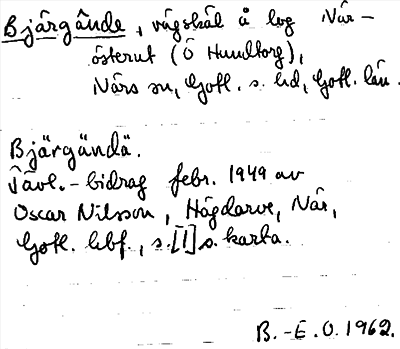 Bjärgände, vägskäl å lvg När-
österut (Ö Hundlorg),
Närs sn, Gotl. s. hd, Gotl. län.
Bjärgändä.
Tävl.-bidrag febr. 1949 av
Oscar Nilsson, Hägdarve, När,
Gotl. hbf., s.[1] s. karta.
B.-E. O. 1962.